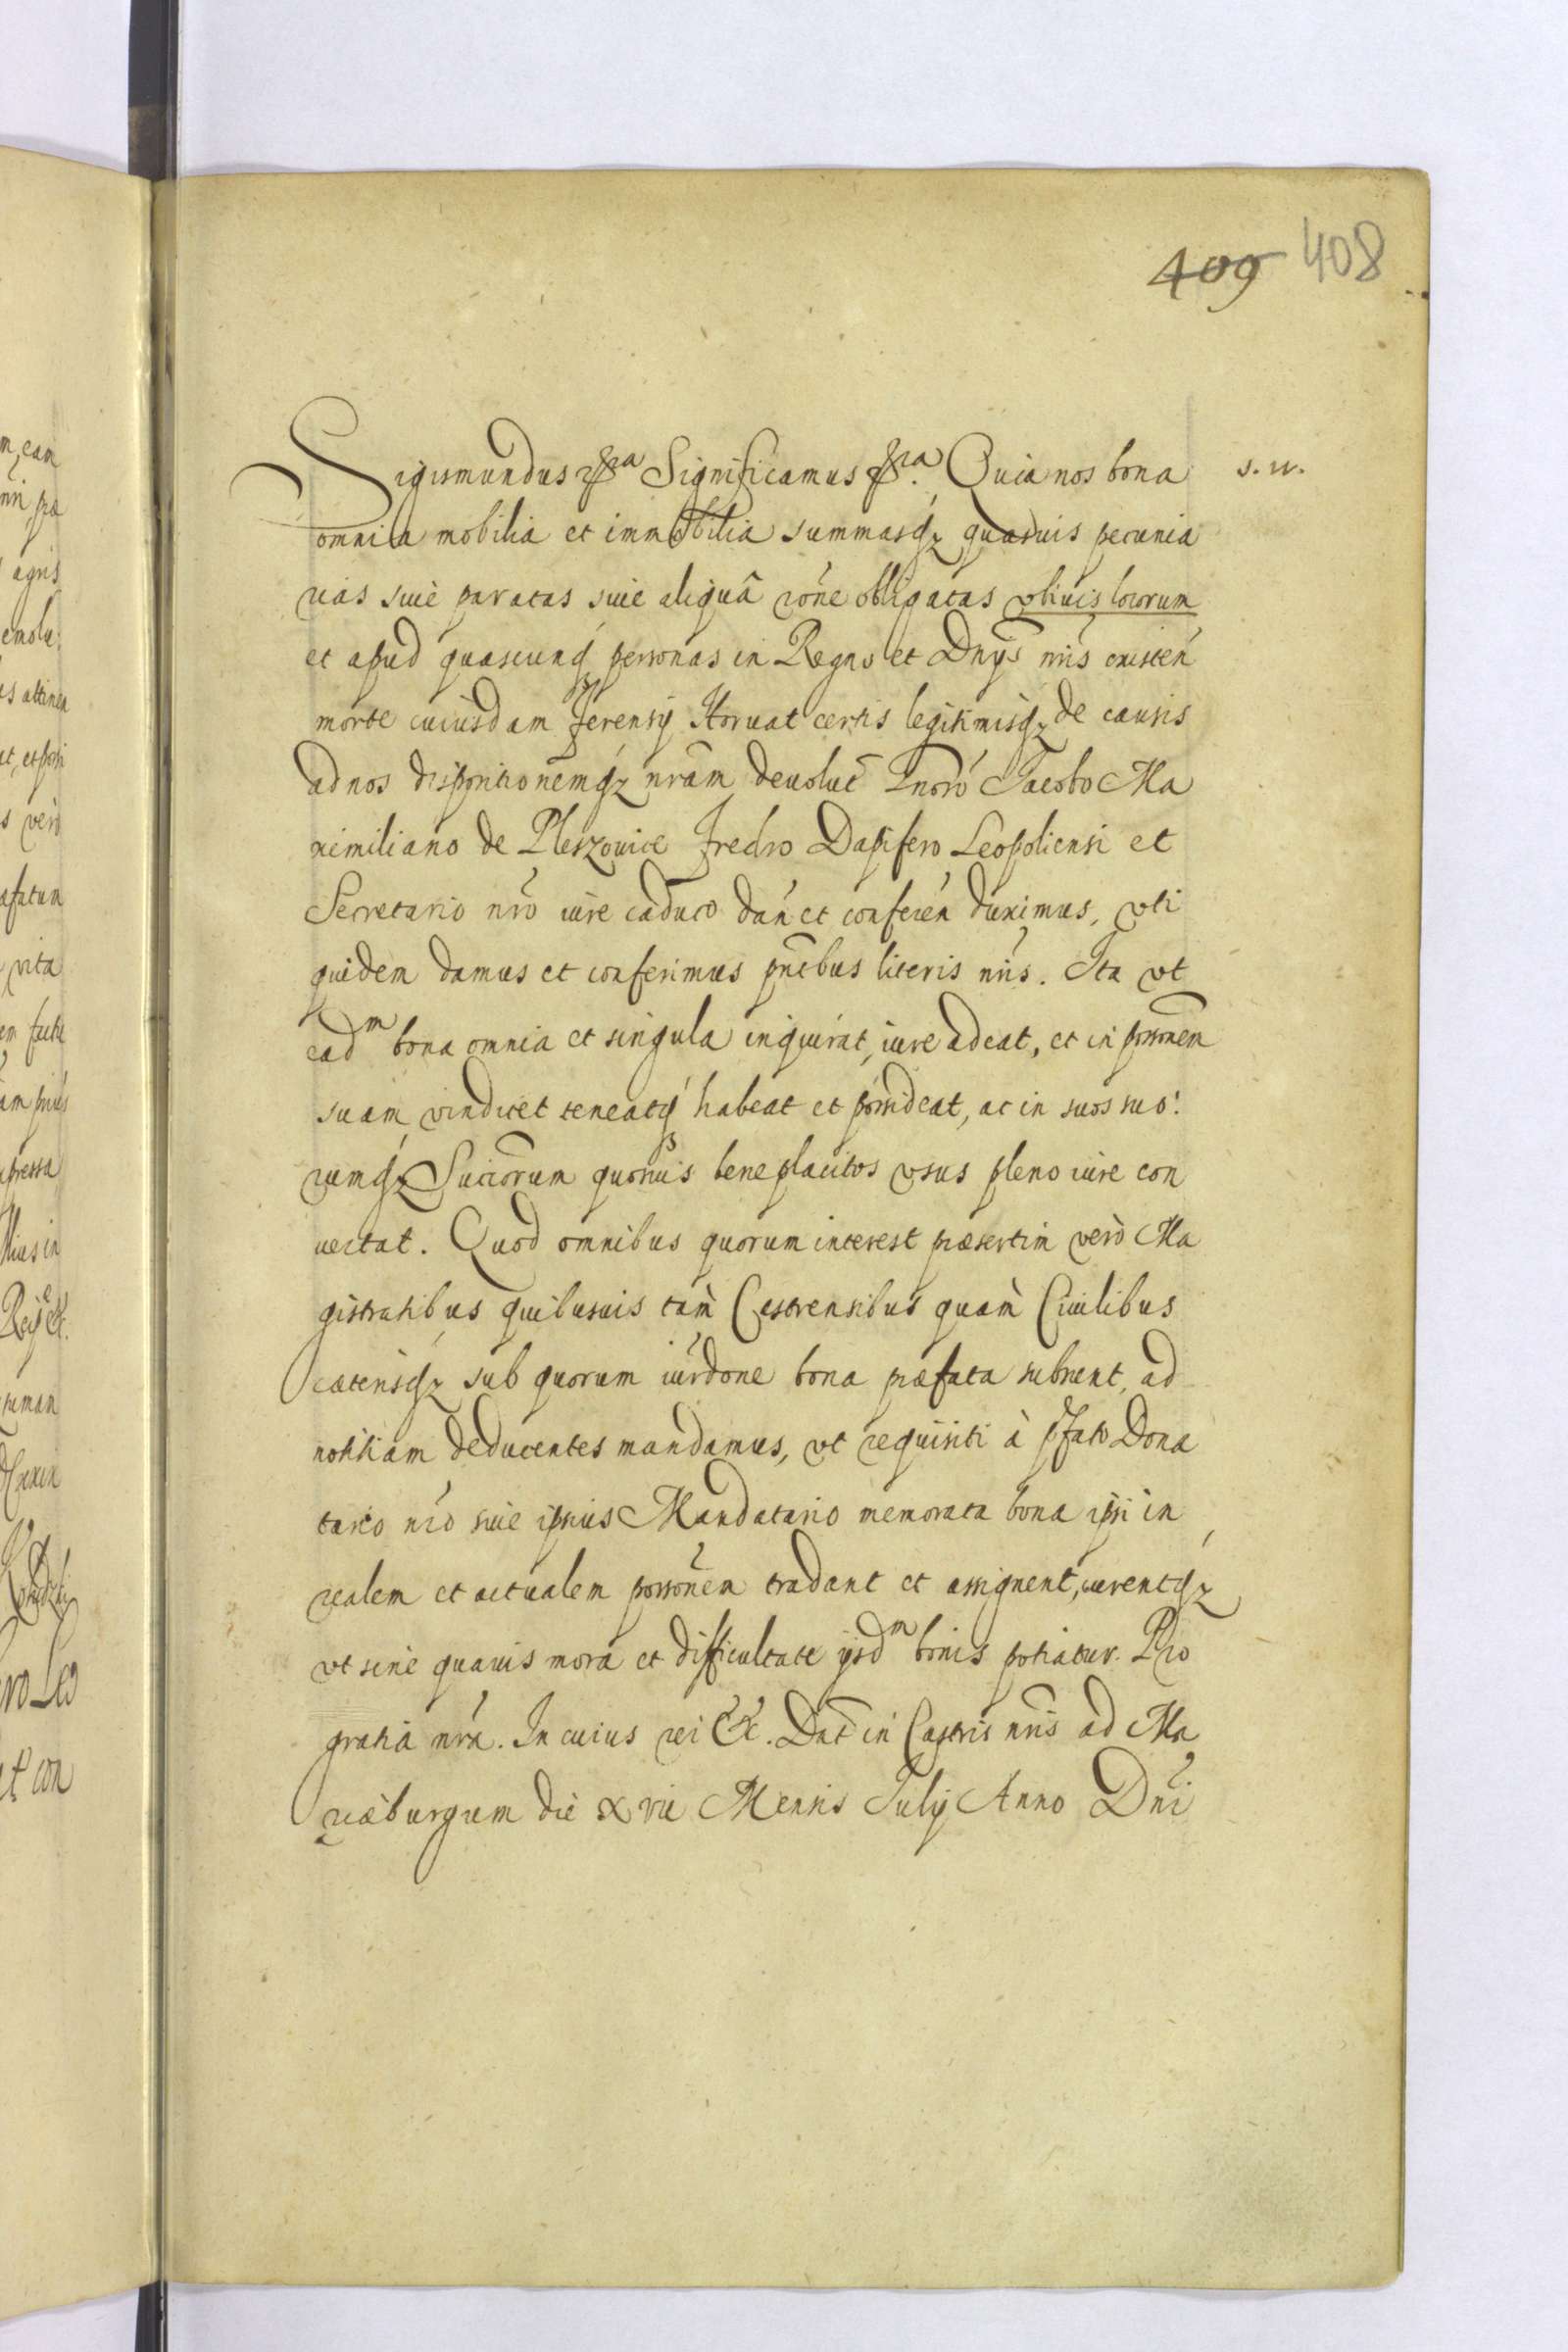 409 408
Sigismundus Significamus Quia nos bona s. n.
omnia mobilia et immobilia summasqz quasuis pecunia
rias siue paratas siue aliquâ rone obligatas vbiuis locorum
et apud quascunq personas in Regno et Dnys nris existen
morte cuiusdam Ferensy Horuat certis legitimisqz de causis
ad nos dispositionemqz nram deuolut Gnoso Jacobo Ma
ximiliano de Pleszouice Fredro Dapifero Leopoliensi et
Secretario nro iure caduco dan et conferen duximus, vti
quidem damus et conferimus pntbus literis nris. Ita vt
eadm bona omnia et singula inquirat, iure adeat, et in possnem
suam vindicet teneatq habeat et possideat, ac in suos suo
rumqz Succrorum quosuis beneplacitos vsus pleno iure con
uertat. Quod omnibus quorum interest præsertim verò Ma
gistratibus quibusuis tàm Castrensibus quàm Ciuilibus
cæterisqz sub quorum iurdone bona præfata subsent, ad
notitiam deducentes mandamus, vt requisiti à pfato Dona
tario nro siue ipsius Mandatario memorata bona ipsi in
realem et actualem possonem tradant et assignent, curentqz
vt sine quauis mora et difficultate ijsdm bonis potiatur. Pro
gratia nra. In cuius rei &c. Dat in Castris nris ad Ma
riæburgum die xvii Mensis July Anno Dni